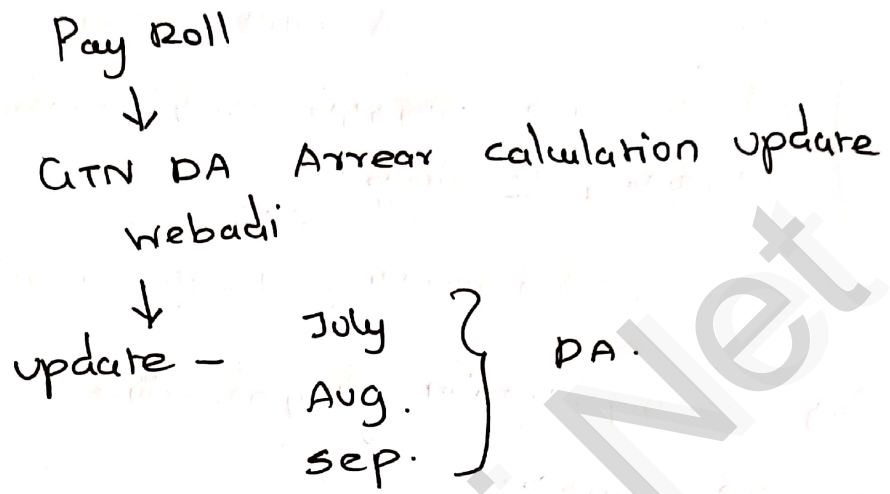 Pay Roll
↓
GTN DA Arrear calculation update
webadi
↓
update - July
Aug.
Sep.
} DA.
Net